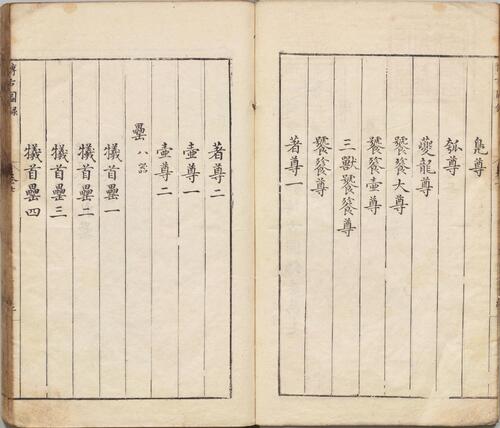 鳬尊
瓠尊
夔龍尊
饕餮大尊
饕餮壷尊
三獸饕餮尊
饕餮尊
著尊一
著尊二
壷尊一
壷尊二
罍八器
犧首罍一
犧首罍二
犧首罍三
犧首罍四
博古圖錄